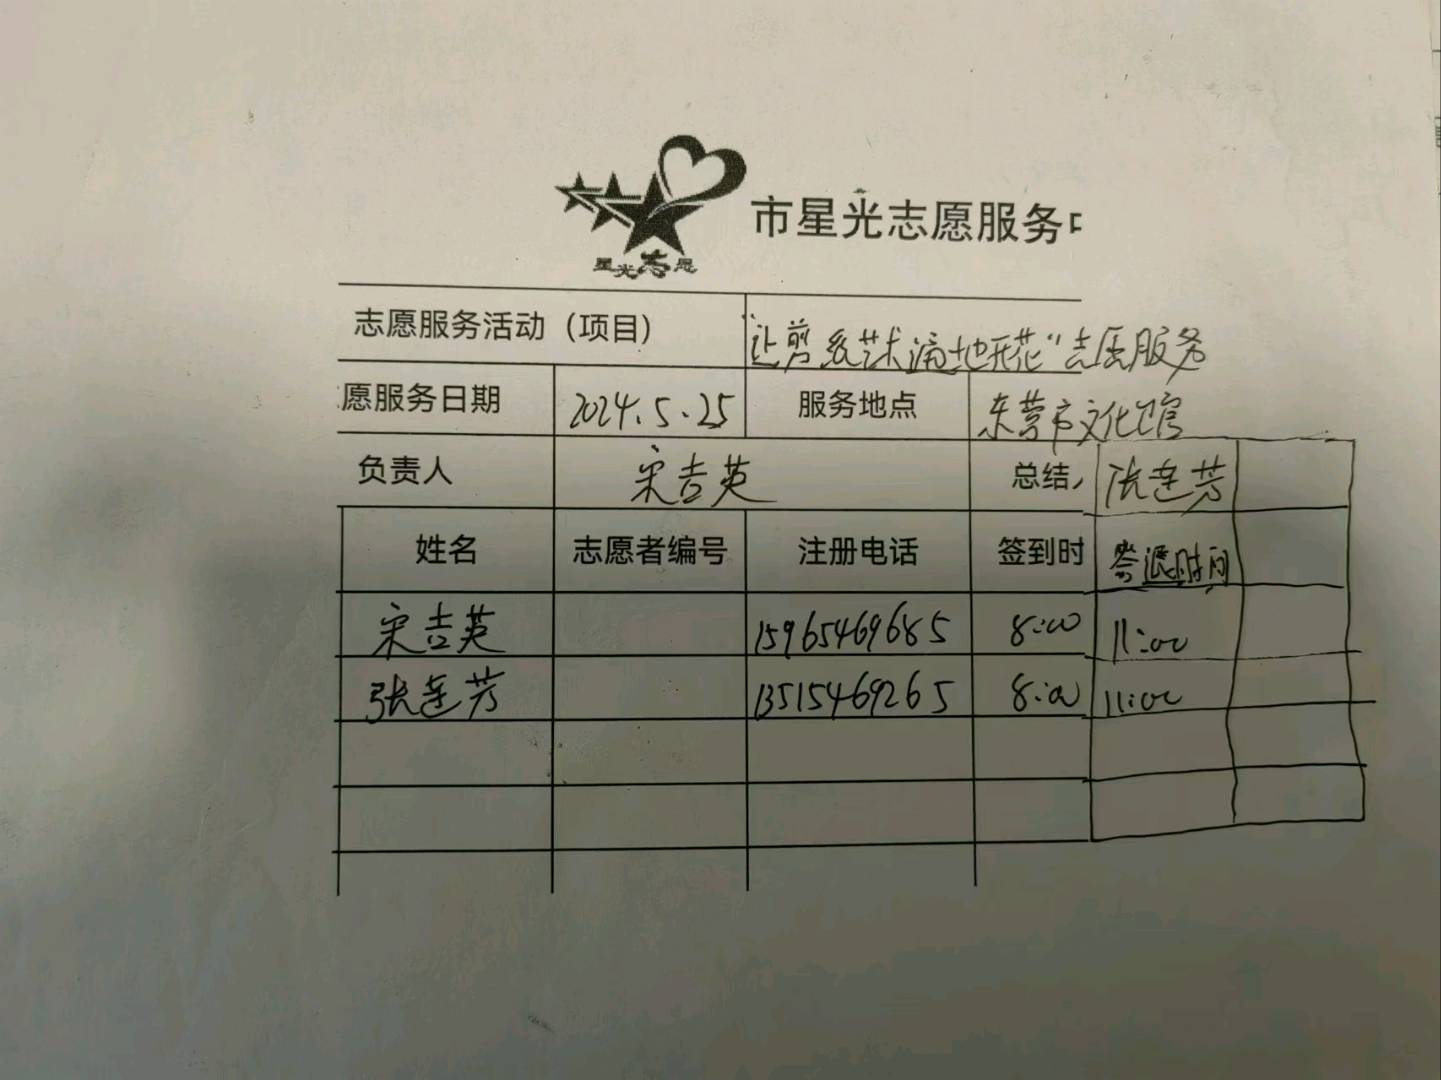 星光志愿
市星光志愿服务
志愿服务活动（项目） "让剪纸艺术遍地开花"志愿服务
愿服务日期 2024.5.25 服务地点 东营市文化馆
负责人 宋吉英 总结 张莲芳
姓名 志愿者编号 注册电话 签到时 签退时间
宋吉英 15965469685 8:00 11:00
张莲芳 13515469265 8:00 11:00